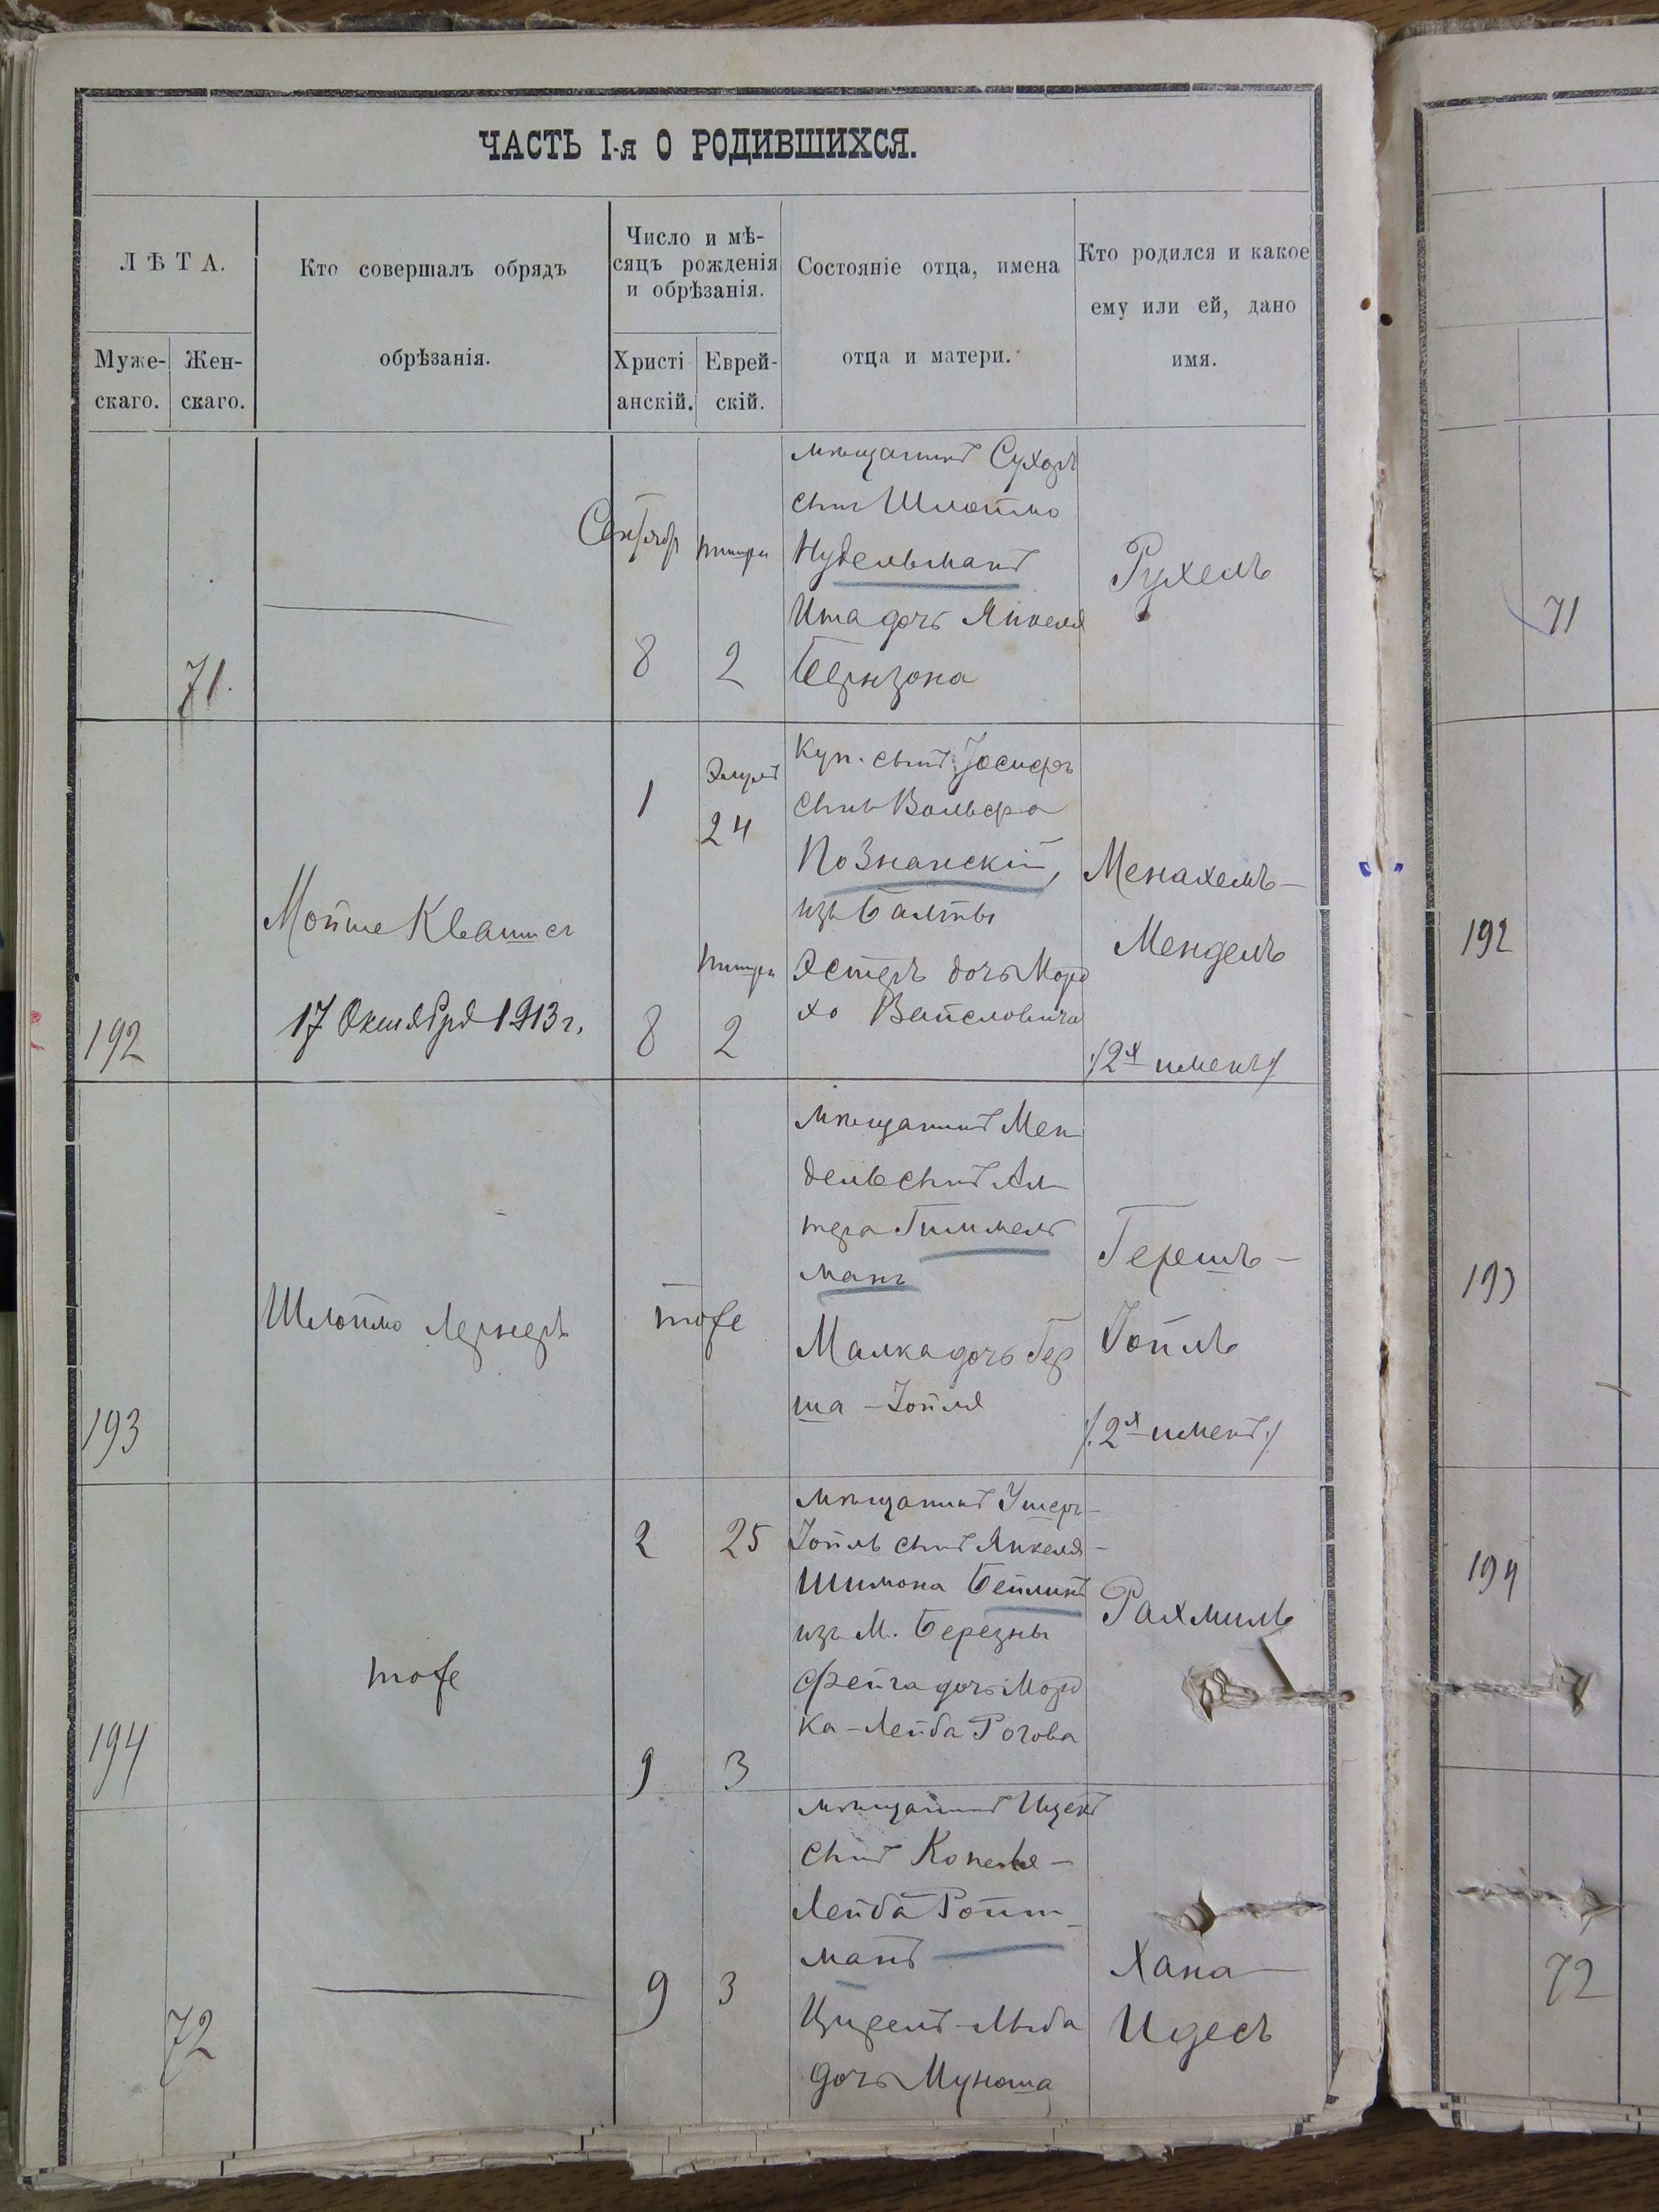 ЧАСТЬ I-я О РОДИВШИХСЯ.
ЛѢТА.
Муже-
скаго.
Жен-
скаго.
Кто совершалъ обрядъ
обрѣзанія.
Число и мѣ-
сяцъ рожденія
и обрѣзанія.
Христі
анскій.
Еврей-
скій.
Состояніе отца, имена
отца и матери.
Кто родился и какое
ему или ей, дано
имя.
71.
Сентябр
8
Тишри
2
мѣщанинъ Сухеръ
сынъ Шлоймо
Нудельманъ
Ита дочь Янкеля
Беринзона
Рухель
71
192
Мойше Квашис
17 Октября 1913 г.
1
8
Элулъ
24
Тишри
2
Куп. сынъ Іосифъ
сынъ Вольфа
Познанскій,
изъ Балты
Эстеръ дочь Мард
хо Вайсловича
Менахемъ-
Мендель
/2х именъ/
192
193
Шлоймо Лернеръ
тоже
мѣщанинъ Мен
дель сынъ Ал
тера Гиммель
манъ
Малка дочь Гер
ша-Іойля
Гершъ-
Іойль
/.2х именъ/
193
194
тоже
2
9
25
3
мѣщанинъ Ушеръ-
Іойль сынъ Янкеля-
Шимона Бейлинъ
изъ М. Березны
Фейга дочь Морд
ка-Лейба Рогова
Рахмиль
194
72
9
3
мѣщанинъ Ицекъ
сынъ Копеля-
Лейба Ройт
манъ
Ципрелъ-Люба
дочь Мунаша
Хана
Идесъ
72